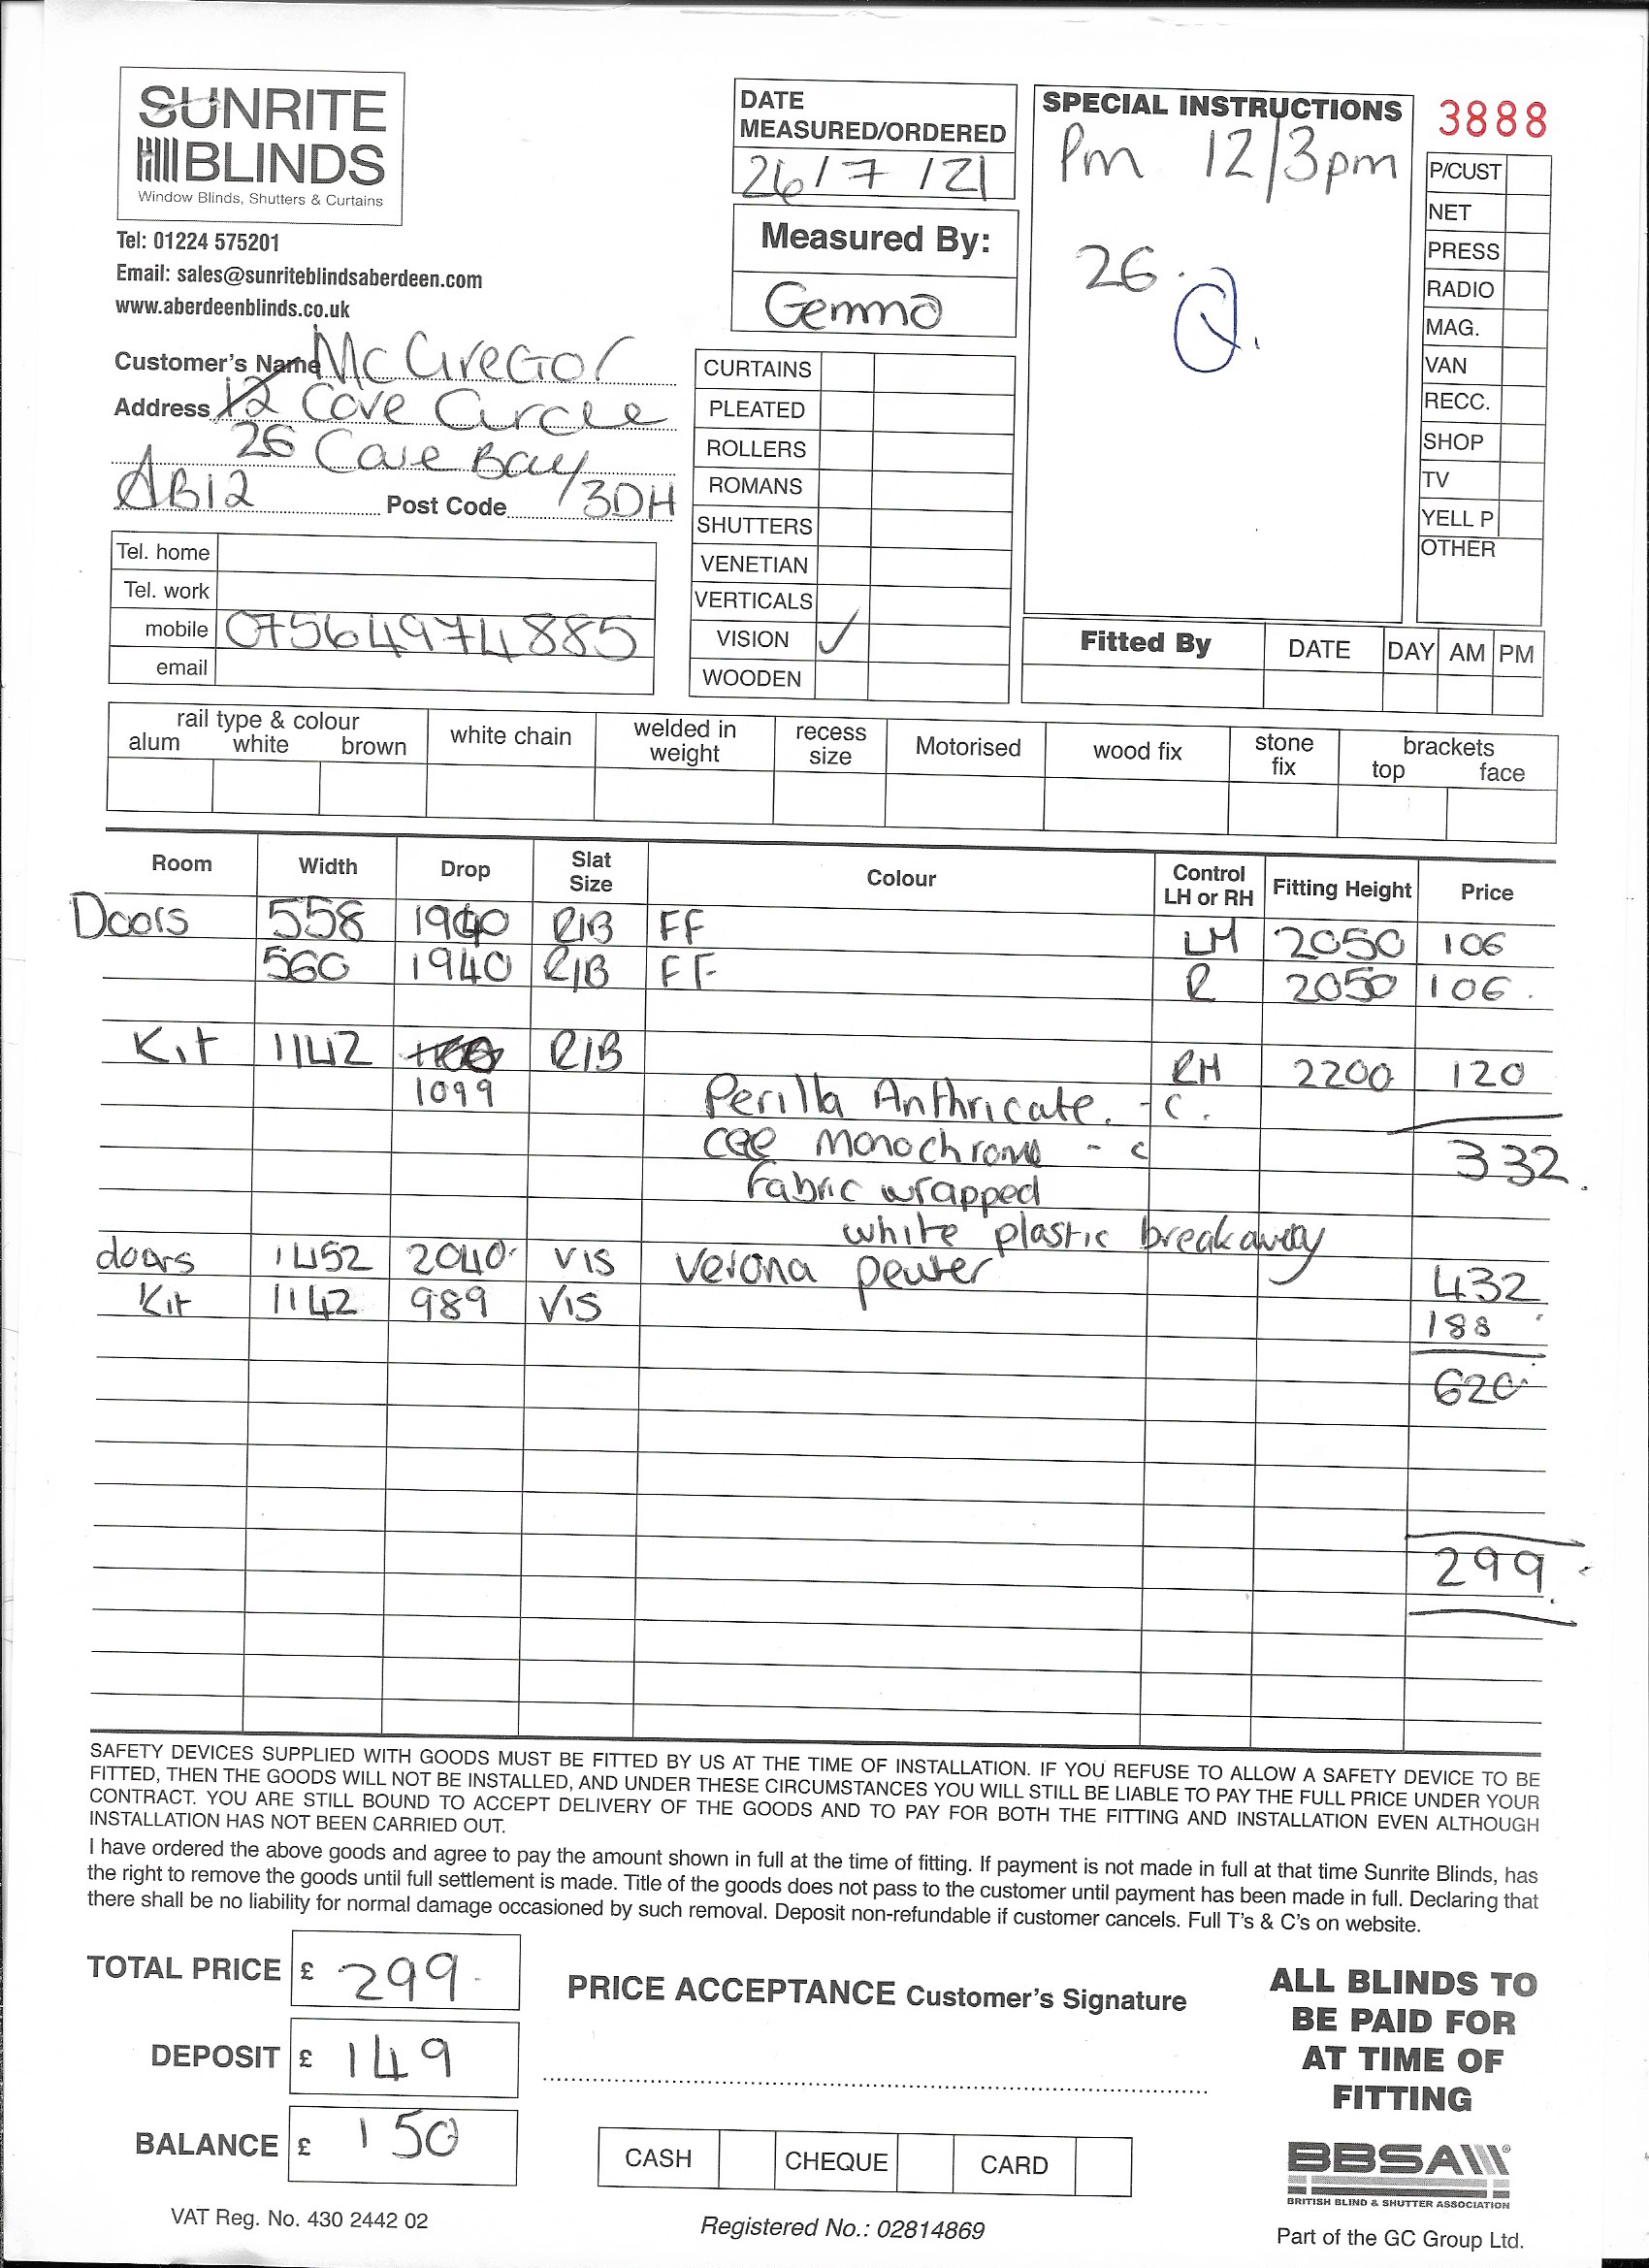 SUNRITE
BLINDS
Window Blinds, Shutters & Curtains
Tel: 01224 575201
Email: sales@sunriteblindsaberdeen.com
www.aberdeenblinds.co.uk
DATE
MEASURED/ORDERED
26/7/21
Measured By:
Gemma
SPECIAL INSTRUCTIONS
Pm 12/3pm
26.
Q.
3888
P/CUST
NET
PRESS
RADIO
MAG.
VAN
RECC.
SHOP
TV
YELL P
OTHER
Customer's Name McGregor
Address 12 Cove Circle
26 Cove Bay
AB12 Post Code 3DH
Tel. home
Tel. work
mobile 07564974885
email
CURTAINS
PLEATED
ROLLERS
ROMANS
SHUTTERS
VENETIAN
VERTICALS
VISION ✓
WOODEN
Fitted By DATE DAY AM PM
rail type & colour
alum white brown
white chain
welded in
weight
recess
size
Motorised
wood fix
stone
fix
brackets
top face
Room Width Drop Slat Size Colour Control LH or RH Fitting Height Price
Doors 558 1940 R/B FF LH 2050 106
560 1940 R/B FF R 2050 106.
Kit 1142 1100 R/B RH 2200 120
1099 Perilla Anthricate. - C.
monochrome - c 332.
Fabric wrapped
white plastic breakaway
doors 1452 2040 VIS Verona pewter 432
Kit 1142 989 VIS 188
620
299
SAFETY DEVICES SUPPLIED WITH GOODS MUST BE FITTED BY US AT THE TIME OF INSTALLATION. IF YOU REFUSE TO ALLOW A SAFETY DEVICE TO BE
FITTED, THEN THE GOODS WILL NOT BE INSTALLED, AND UNDER THESE CIRCUMSTANCES YOU WILL STILL BE LIABLE TO PAY THE FULL PRICE UNDER YOUR
CONTRACT. YOU ARE STILL BOUND TO ACCEPT DELIVERY OF THE GOODS AND TO PAY FOR BOTH THE FITTING AND INSTALLATION EVEN ALTHOUGH
INSTALLATION HAS NOT BEEN CARRIED OUT.
I have ordered the above goods and agree to pay the amount shown in full at the time of fitting. If payment is not made in full at that time Sunrite Blinds, has
the right to remove the goods until full settlement is made. Title of the goods does not pass to the customer until payment has been made in full. Declaring that
there shall be no liability for normal damage occasioned by such removal. Deposit non-refundable if customer cancels. Full T's & C's on website.
TOTAL PRICE £ 299.
DEPOSIT £ 149
BALANCE £ 150
PRICE ACCEPTANCE Customer's Signature
CASH CHEQUE CARD
ALL BLINDS TO
BE PAID FOR
AT TIME OF
FITTING
BBSA
BRITISH BLIND & SHUTTER ASSOCIATION
VAT Reg. No. 430 2442 02
Registered No.: 02814869
Part of the GC Group Ltd.